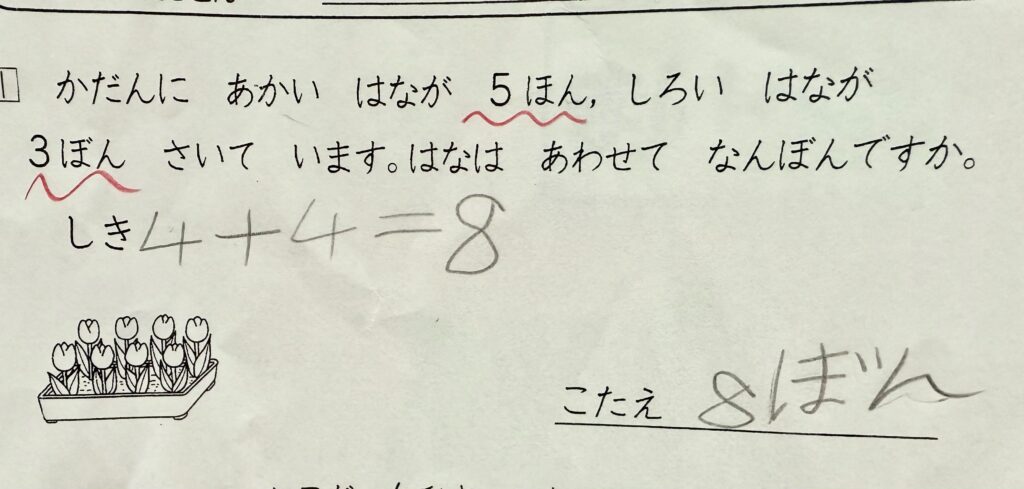 1 かだんに あかい はなが 5ほん, しろい はなが
3ぼん さいて います。はなは あわせて なんぼんですか。
しき 4+4=8
こたえ 8ぼん